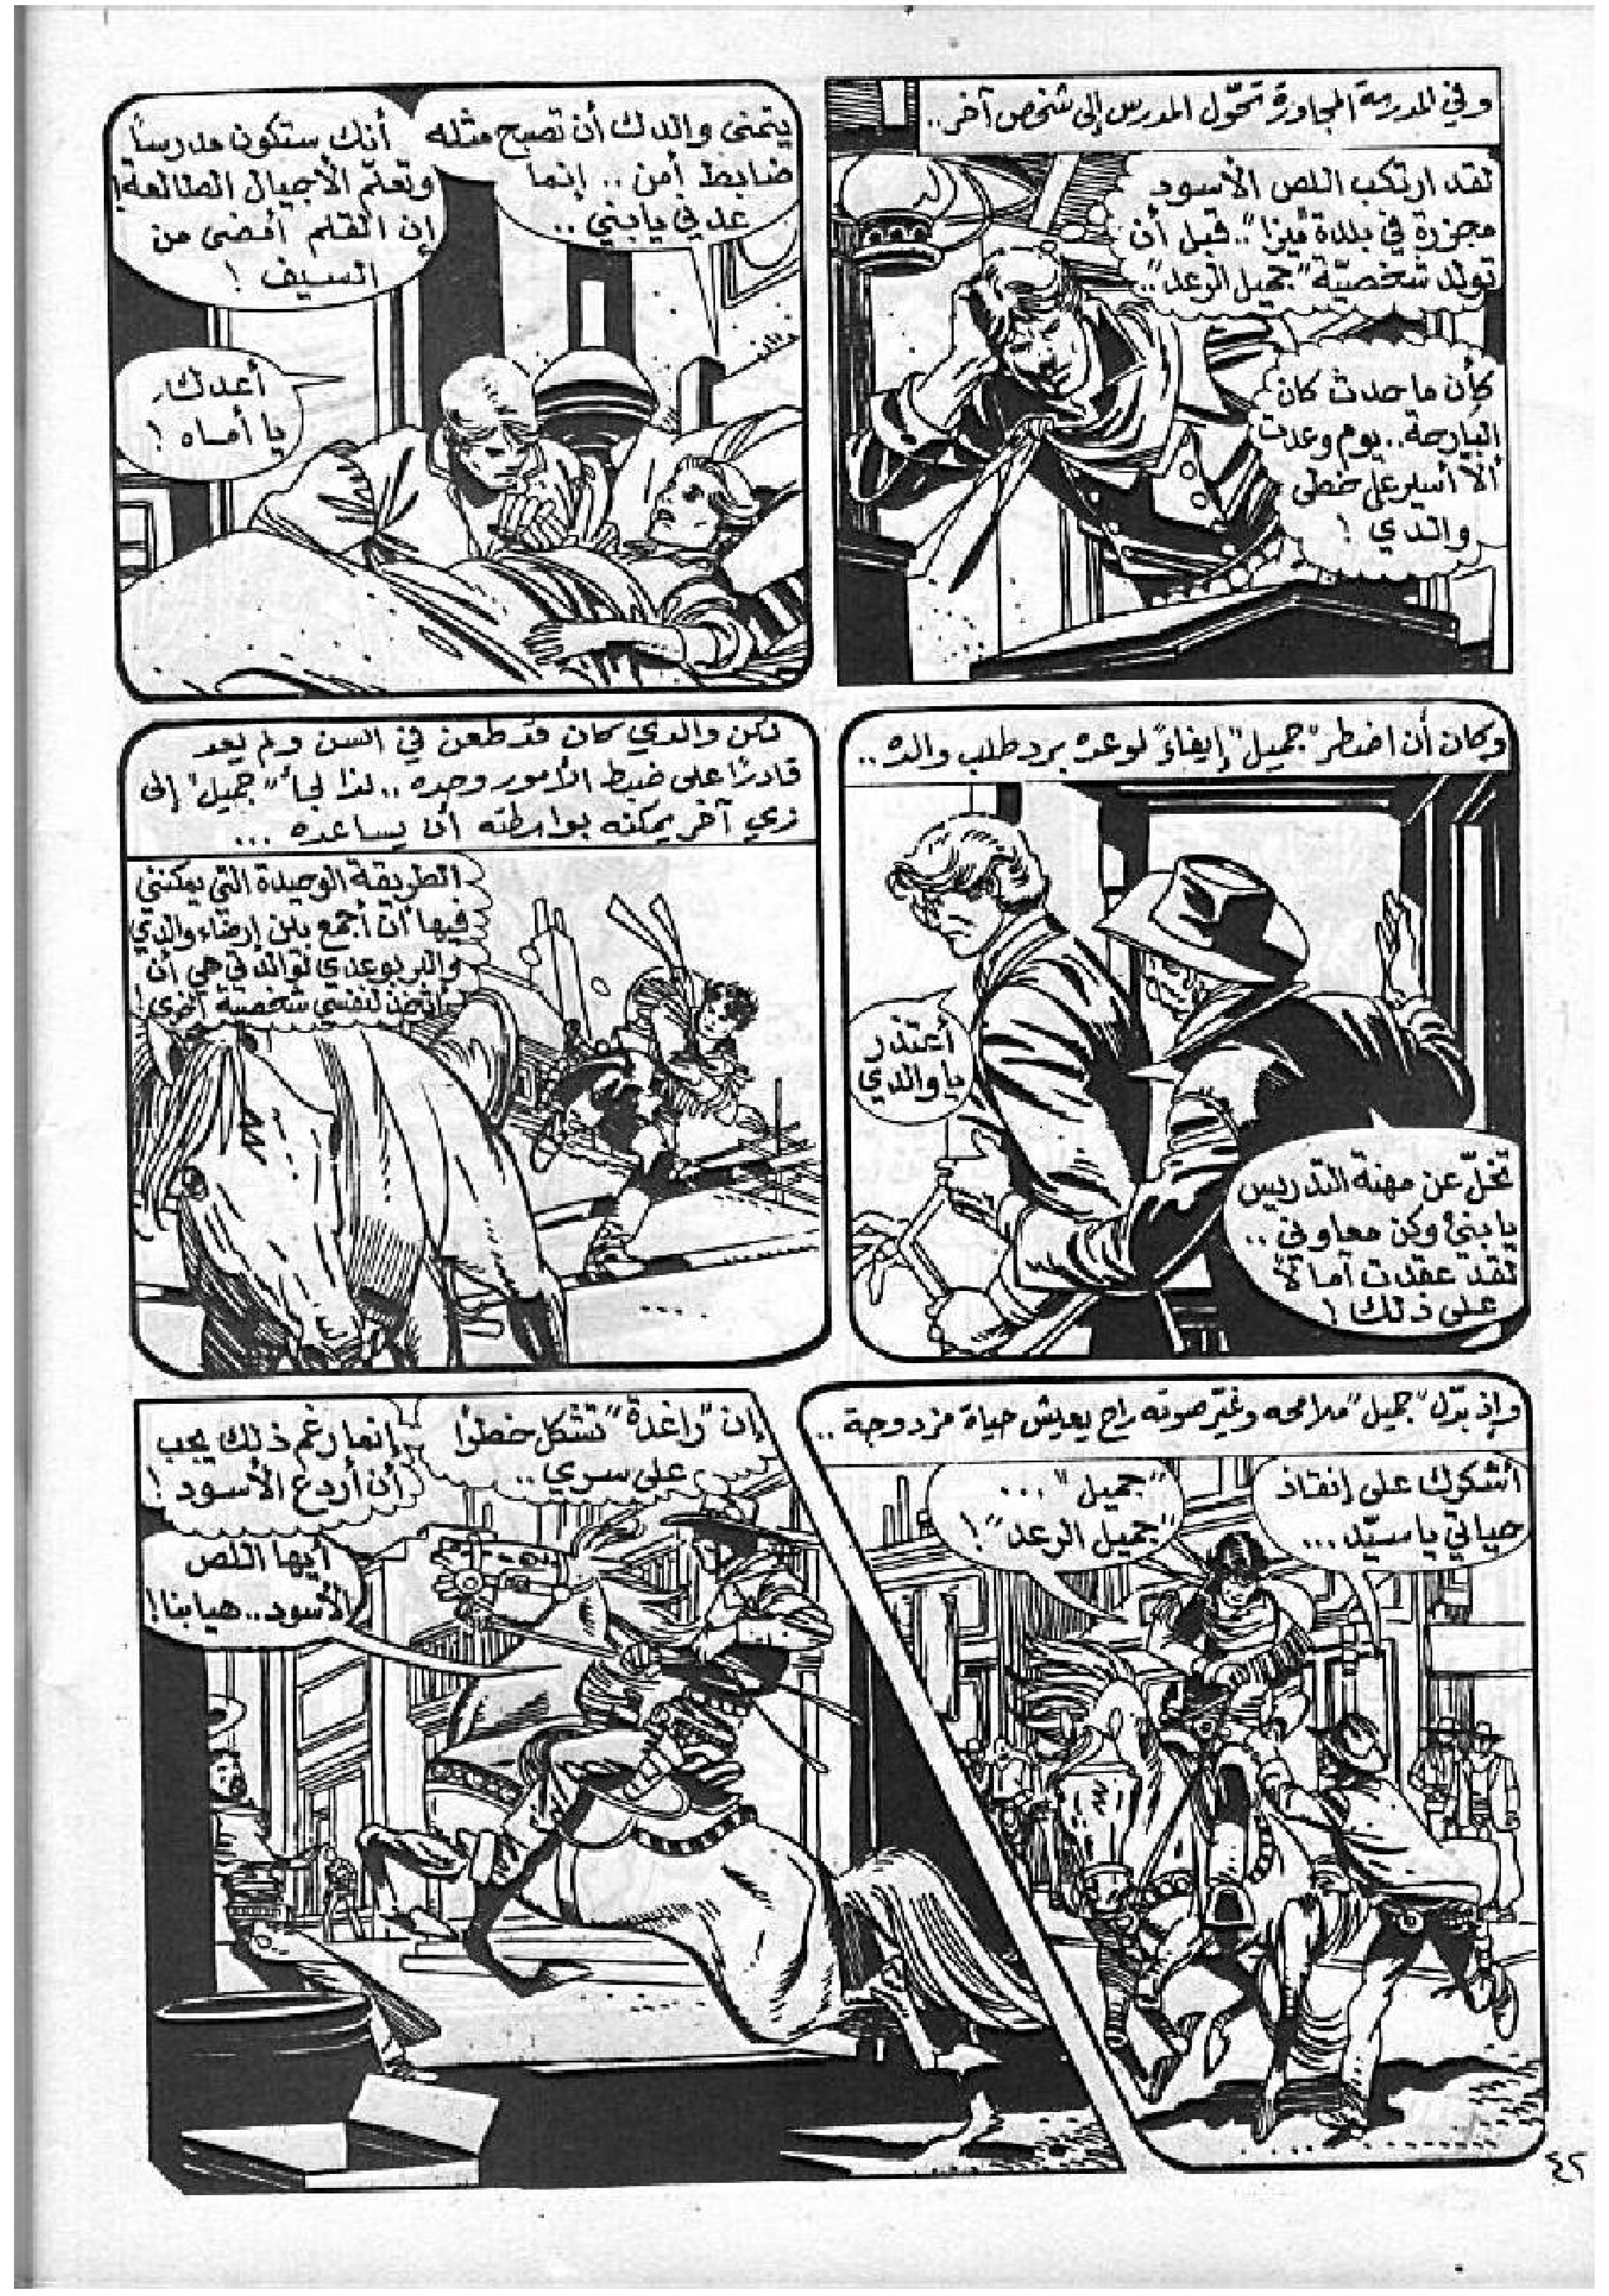 وفي المدرسة المجاورة تحّول المدرس إلى شخص آخر..
لقد ارتكب اللص الأسود
مجزرة في بلدة "ميزا".. قبل أن
تولد شخصيّة "جميل الرعد"..
كأن ما حدث كان
البارحة.. يوم وعدت
ألا أسير على خطى
والدي !
يتمنى والدك أن تصبح مثله
ضابط أمن .. إنما
عدني يا بني ..
أنك ستكون مدرساً
وتعلّم الأجيال الطالعة!
إن القلم أمضى من
السيف !
أعدك
يا أماه !
وكان أن اضطر "جميل" إيفاءً لوعده برد طلب والده ..
أعتذر
يا والدي
تخلّ عن مهنة التدريس
يا بني وكن معاوني ..
لقد عقدت آمالاً
على ذلك !
لكن والدي كان قد طعن في السن ولم يعد
قادرًا على ضبط الأمور وحده .. لذا لجأ "جميل" إلى
زي آخر يمكنه بواسطته أن يساعده ...
الطريقة الوحيدة التي يمكنني
فيها أن أجمع بين إرضاء والدي
والبر بوعدي لوالدتي هي أن
أتخذ لنفسي شخصية أخرى !
وإذ بدّل "جميل" ملامحه وغيّر صوته راح يعيش حياة مزدوجة ..
أشكرك على إنقاذ
حياتي يا سيّد ...
"جميل" ...
"جميل الرعد" !
إن "راغدة" تشكل خطرًا
على سري ..
إنما رغم ذلك يجب
أن أردع الأسود !
أيها اللص
الأسود .. هيا بنا !
٤٢